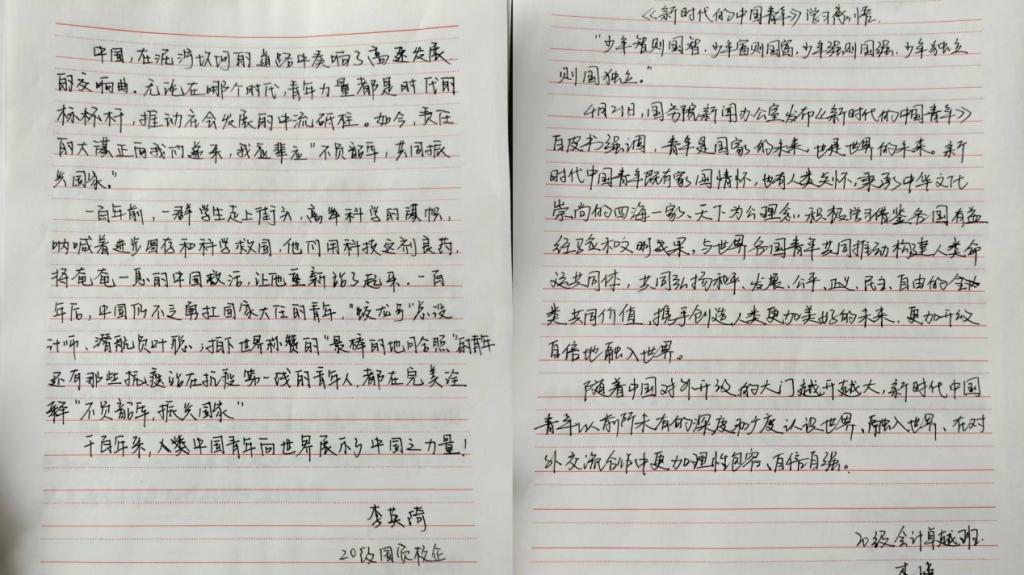 中国，在泥泞坎坷的道路中奏响了高速发展
的交响曲。无论在哪个时代，青年力量都是时代的
标杯杆，推动社会发展的中流砥柱。如今，责任
的大漠正向我们递来，我辈应"不负韶华，共同振
兴国家。"
一百年前，一群学生走上街头，高举科学的旗帜，
呐喊着进步图存和科学救国，他们用科技这剂良药，
将奄奄一息的中国救活，让他重新站了起来。一百
年后，中国仍不乏勇扛国家大任的青年，"蛟龙号"总设
计师、潜航员叶聪；拍下世界称赞的"最棒的地月合照"的青年
还有那些抗疫站在抗疫第一线的青年人，都在完美诠
释"不负韶华，振兴国家"
千百年来，人类中国青年向世界展示了中国之力量！
李英
20级国贸校企
《新时代的中国青年》学习感悟.
"少年智则国智，少年富则国富，少年强则国强，少年独立
则国独立。"
4月21日，国务院新闻办公室发布《新时代的中国青年》
白皮书强调，青年是国家的未来，也是世界的未来。新
时代中国青年既有家国情怀，也有人类关怀，秉承中华文化
崇尚的四海一家、天下为公理念，积极学习借鉴各国有益
经验和文明成果，与世界各国青年共同推动构建人类命
运共同体，共同弘扬和平、发展、公平、正义、民主、自由的全人
类共同价值，携手创造人类更加美好的未来，更加开放
自信地融入世界。
随着中国对外开放的大门越开越大，新时代中国
青年以前所未有的深度和广度认识世界、融入世界，在对
外交流合作中更加理性包容、自信自强。
20级会计卓越班